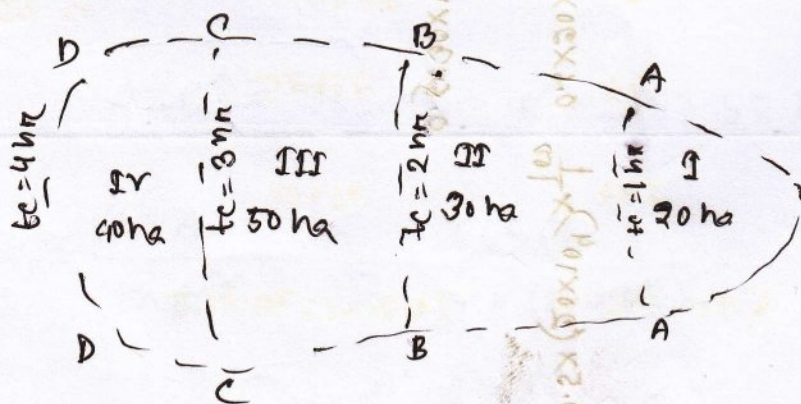 D C B A
tc = 4 hr
IV
40 ha
tc = 3 hr
III
50 ha
tc = 2 hr
II
30 ha
tc = 1 hr
I
20 ha
D C B A